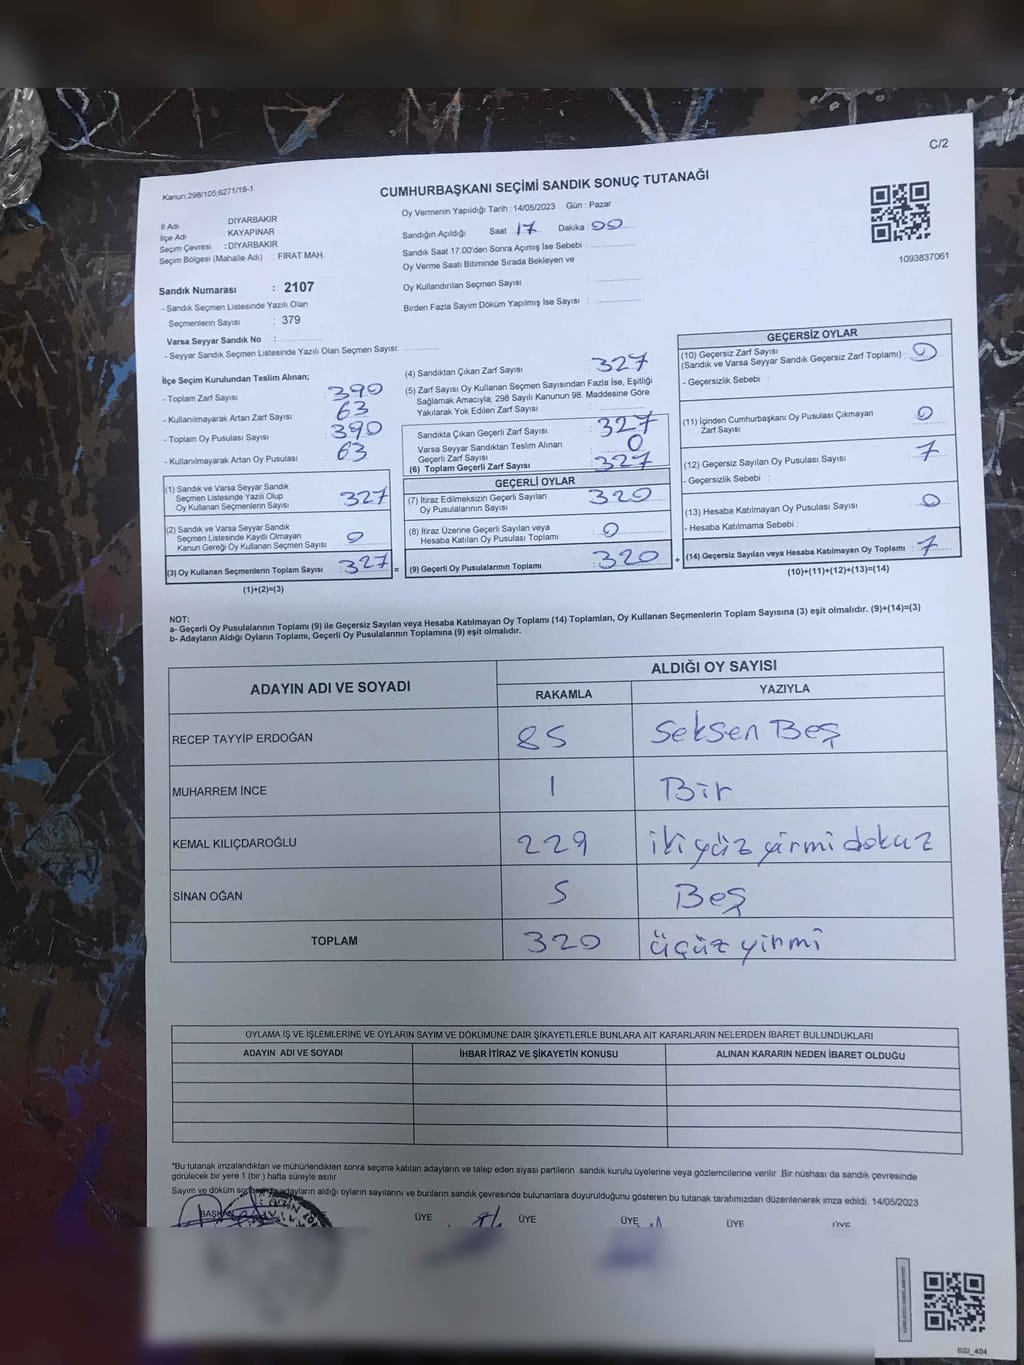 C/2
Kanun:298/105,6271/16-1
CUMHURBAŞKANI SEÇİMİ SANDIK SONUÇ TUTANAĞI
İl Adı DİYARBAKIR
İlçe Adı KAYAPINAR
Seçim Çevresi : DİYARBAKIR
Seçim Bölgesi (Mahalle Adı) : FIRAT MAH.
Oy Vermenin Yapıldığı Tarih : 14/05/2023 Gün : Pazar
Sandığın Açıldığı Saat 17 Dakika 00
Sandık Saat 17:00'den Sonra Açımış İse Sebebi :
Oy Verme Saati Bitiminde Sırada Bekleyen ve
Oy Kullandırılan Seçmen Sayısı :
Birden Fazla Sayım Döküm Yapılmış İse Sayısı :
1093837061
Sandık Numarası : 2107
- Sandık Seçmen Listesinde Yazılı Olan
Seçmenlerin Sayısı : 379
Varsa Seyyar Sandık No :
- Seyyar Sandık Seçmen Listesinde Yazılı Olan Seçmen Sayısı:
İlçe Seçim Kurulundan Teslim Alınan;
- Toplam Zarf Sayısı : 390
- Kullanılmayarak Artan Zarf Sayısı : 63
- Toplam Oy Pusulası Sayısı : 390
- Kullanılmayarak Artan Oy Pusulası : 63
(1) Sandık ve Varsa Seyyar Sandık
Seçmen Listesinde Yazılı Olup
Oy Kullanan Seçmenlerin Sayısı : 327
(2) Sandık ve Varsa Seyyar Sandık
Seçmen Listesinde Kayıtlı Olmayan
Kanun Gereği Oy Kullanan Seçmen Sayısı : 0
(3) Oy Kullanan Seçmenlerin Toplam Sayısı : 327 =
(1)+(2)=(3)
(4) Sandıktan Çıkan Zarf Sayısı : 327
(5) Zarf Sayısı Oy Kullanan Seçmen Sayısından Fazla İse, Eşitliği
Sağlamak Amacıyla, 298 Sayılı Kanunun 98. Maddesine Göre
Yakılarak Yok Edilen Zarf Sayısı :
Sandıkta Çıkan Geçerli Zarf Sayısı : 327
Varsa Seyyar Sandıktan Teslim Alınan
Geçerli Zarf Sayısı : 0
(6) Toplam Geçerli Zarf Sayısı : 327
GEÇERLİ OYLAR
(7) İtiraz Edilmeksizin Geçerli Sayılan
Oy Pusulalarının Sayısı : 320
(8) İtiraz Üzerine Geçerli Sayılan veya
Hesaba Katılan Oy Pusulası Toplamı : 0
(9) Geçerli Oy Pusulalarının Toplamı : 320 +
GEÇERSİZ OYLAR
(10) Geçersiz Zarf Sayısı
(Sandık ve Varsa Seyyar Sandık Geçersiz Zarf Toplamı) : 0
- Geçersizlik Sebebi :
(11) İçinden Cumhurbaşkanı Oy Pusulası Çıkmayan
Zarf Sayısı : 0
(12) Geçersiz Sayılan Oy Pusulası Sayısı : 7
- Geçersizlik Sebebi :
(13) Hesaba Katılmayan Oy Pusulası Sayısı : 0
- Hesaba Katılmama Sebebi :
(14) Geçersiz Sayılan veya Hesaba Katılmayan Oy Toplamı : 7
(10)+(11)+(12)+(13)=(14)
NOT:
a- Geçerli Oy Pusulalarının Toplamı (9) ile Geçersiz Sayılan veya Hesaba Katılmayan Oy Toplamı (14) Toplamları, Oy Kullanan Seçmenlerin Toplam Sayısına (3) eşit olmalıdır. (9)+(14)=(3)
b- Adayların Aldığı Oyların Toplamı, Geçerli Oy Pusulalarının Toplamına (9) eşit olmalıdır.
ADAYIN ADI VE SOYADI ALDIĞI OY SAYISI
RAKAMLA YAZIYLA
RECEP TAYYİP ERDOĞAN 85 Seksen Beş
MUHARREM İNCE 1 Bir
KEMAL KILIÇDAROĞLU 229 ikiyüz yirmi dokuz
SİNAN OĞAN 5 Beş
TOPLAM 320 üçüz yirmi
OYLAMA İŞ VE İŞLEMLERİNE VE OYLARIN SAYIM VE DÖKÜMÜNE DAİR ŞİKAYETLERLE BUNLARA AİT KARARLARIN NELERDEN İBARET BULUNDUKLARI
ADAYIN ADI VE SOYADI İHBAR İTİRAZ VE ŞİKAYETİN KONUSU ALINAN KARARIN NEDEN İBARET OLDUĞU
*Bu tutanak imzalandıktan ve mühürlendikten sonra seçime katılan adayların ve talep eden siyasi partilerin sandık kurulu üyelerine veya gözlemcilerine verilir .Bir nüshası da sandık çevresinde
görülecek bir yere 1 (bir ) hafta süreyle asılır
Sayım ve döküm adayların aldığı oyların sayılarını ve bunların sandık çevresinde bulunanlara duyurulduğunu gösteren bu tutanak tarafımızdan düzenlenerek imza edildi. 14/05/2023
BAŞKAN ÜYE ÜYE ÜYE ÜYE ÜYE